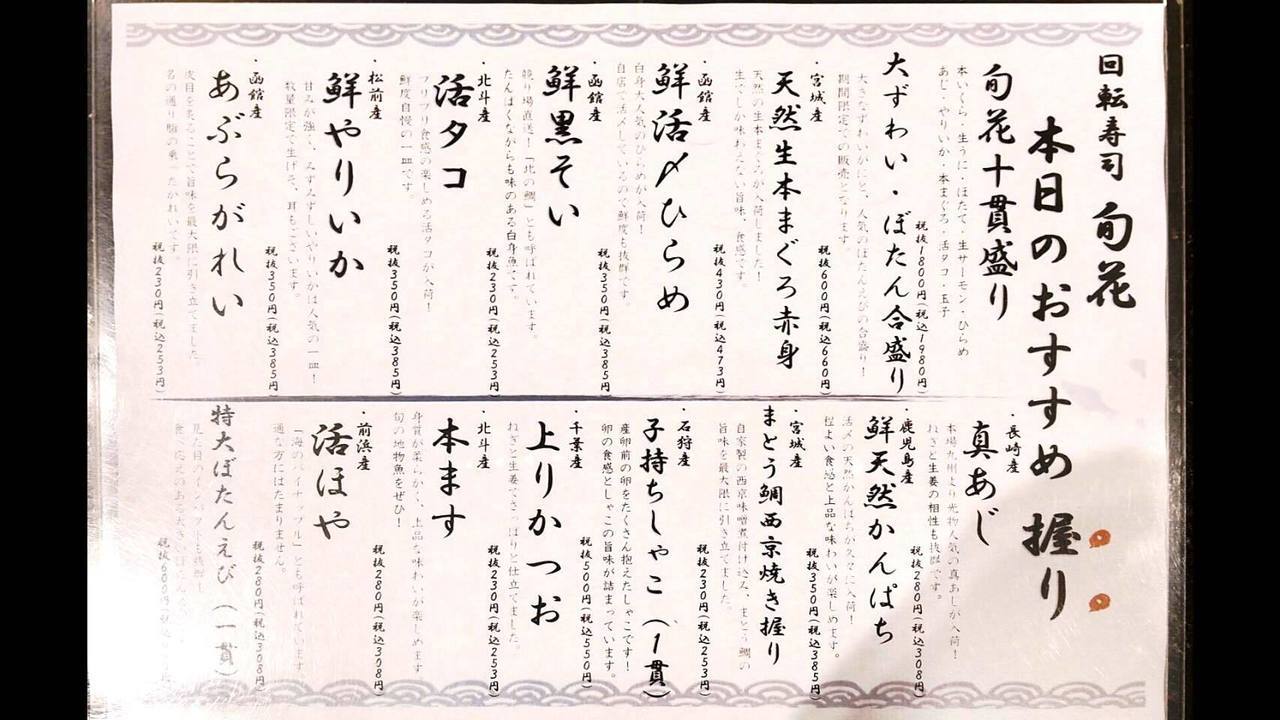 回転寿司 旬花
本日のおすすめ 握り
旬花十貫盛り
本いくら・生うに・ほたて・生サーモン・ひらめ
あじ・やりいか・本まぐろ・活タコ・玉子
税抜1800円(税込1980円)
大ずわい・ぼたん合盛り
大きなずわいがにと、人気のぼたんえびの合盛り!
期間限定での販売となります。
税抜600円(税込660円)
・宮城産
天然生本まぐろ赤身
天然の生本まぐろが入荷しました!
生でしか味わえない旨味、食感です。
税抜430円(税込473円)
・函館産
鮮活〆ひらめ
白身で人気のひらめが入荷!
自店で活〆しているので鮮度も抜群です。
税抜350円(税込385円)
・函館産
鮮黒そい
競り場直送!「北の鯛」とも呼ばれています。
たんぱくながらも味のある白身魚です。
税抜230円(税込253円)
・北斗産
活タコ
プリプリ食感の楽しめる活タコが入荷!
鮮度自慢の一皿です。
税抜350円(税込385円)
・松前産
鮮やりいか
甘みが強くみずみずしいやりいかは人気の一皿!
数量限定で生げそ、耳もございます。
税抜350円(税込385円)
・函館産
あぶらがれい
皮目を炙ることで旨味を最大限に引き立てました
名の通り脂の乗ったかれいです。
税抜230円(税込253円)
・長崎産
真あじ
本場九州より光物人気の真あじが入荷!
ねぎと生姜の相性も抜群です。
税抜280円(税込308円)
・鹿児島産
鮮天然かんぱち
活〆の天然かんぱちが久々に入荷!
程よい食感と上品な味わいが楽しめます。
税抜350円(税込385円)
・宮城産
まとう鯛西京焼き握り
自家製の西京味噌煮付け込み、まとう鯛の
旨味を最大限に引き立てました。
税抜230円(税込253円)
・石狩産
子持ちしゃこ(1貫)
産卵前の卵をたくさん抱えたしゃこです!
卵の食感としゃこの旨味が詰まっています。
税抜500円(税込550円)
・千葉産
上りかつお
ねぎと生姜でさっぱりと仕立てました。
税抜230円(税込253円)
・北斗産
本ます
身質が柔らかく、上品な味わいが楽しめます
旬の地物魚をぜひ!
税抜280円(税込308円)
・前浜産
活ほや
「海のパイナップル」とも呼ばれています
通な方にはたまりません。
税抜280円(税込308円)
特大ぼたんえび(一貫)
見た目のインパクトも抜群!
税抜600円